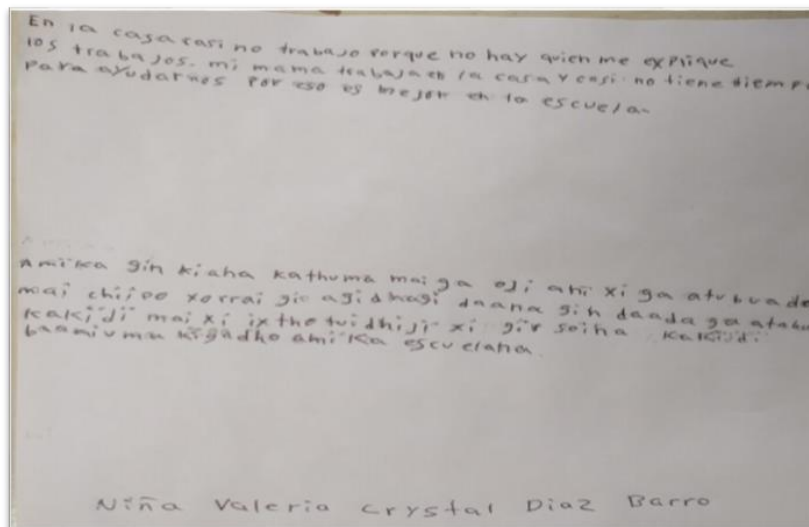 En la casa casi no trabajo porque no hay quien me explique
los trabajos. mi mama trabaja en la casa y casi no tiene tiemp
para ayudarnos por eso es mejor en la escuela.
Amïka gin kiaha kathuma mai ga oji ahi xi ga atubuada
mai chijoo xorrai gic agidhagi daana gin daada ga atabu
kakïdï mai xi ixtho tuidhiji xi gir soiha kakïïdi
baamiuma kïgadho amïka escuelana
Niña Valeria Crystal Diaz Barro